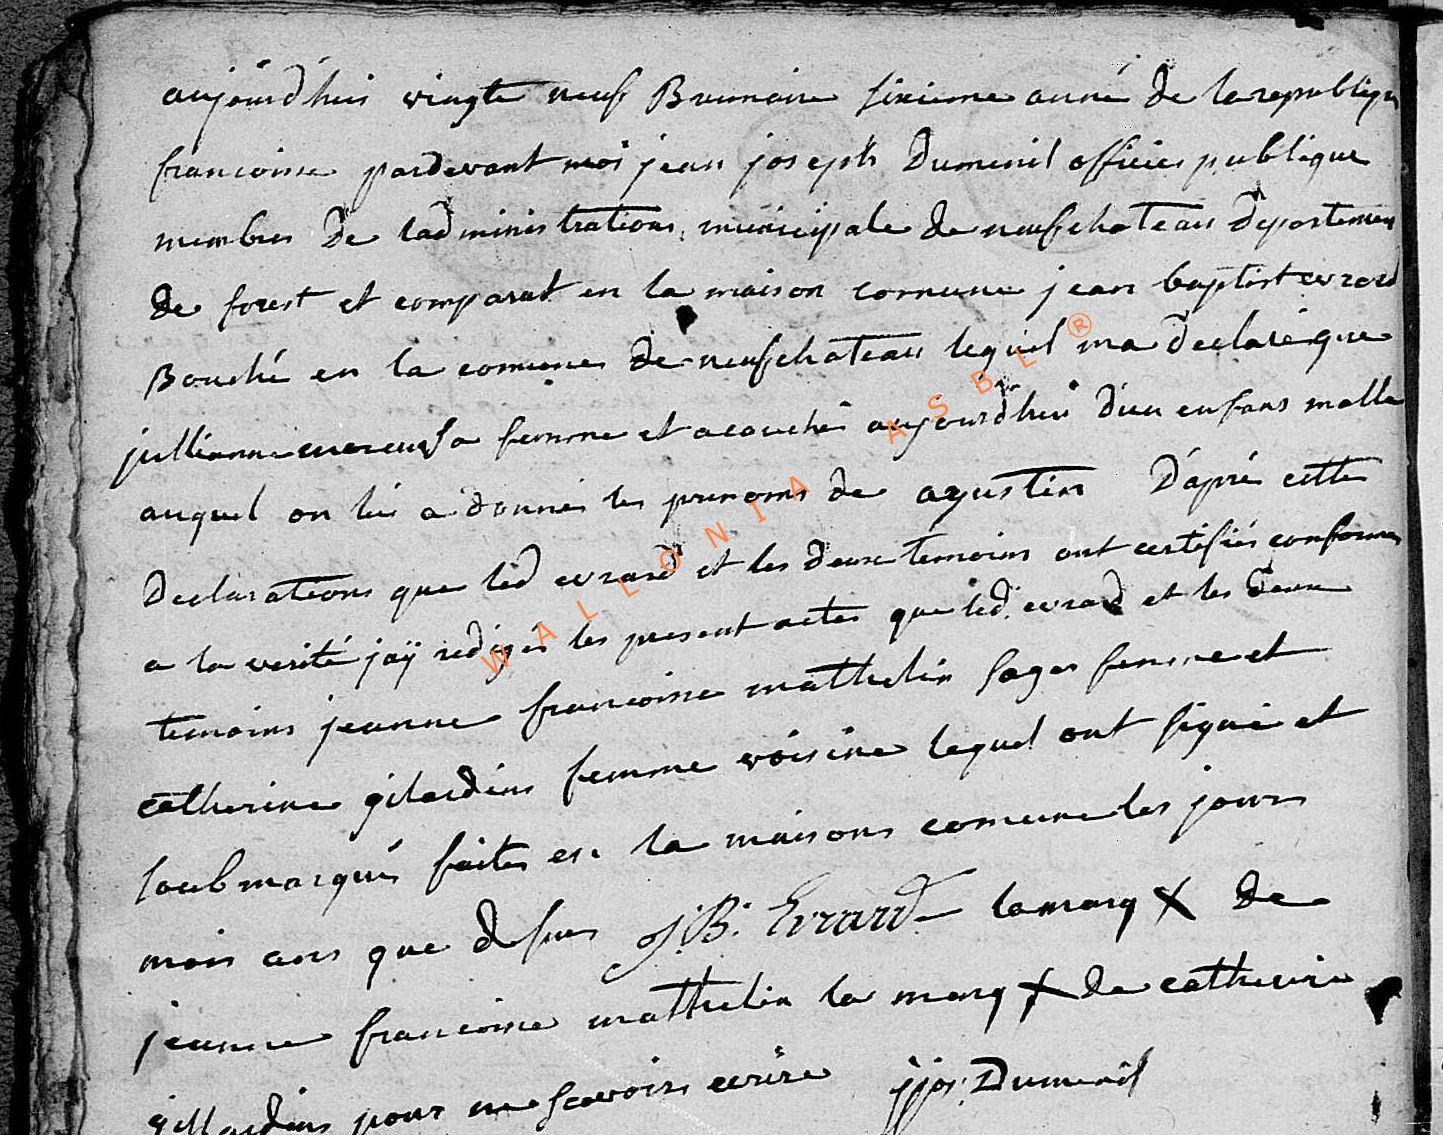 aujourd'huis vingte neuf Brumaire sixieme année de la republique
francoisse pardevant moi jean joseph Dumenil officier publique
membres de ladministrations municipale de neufchateau departemen
de forest et comparut en la maison comune jean baptist evrard
Bouché en la comune de neufchateau lequel ma declaré que
jullienne sa femme et acouchée aujourd'hui d'un enfans malle
auquel on lui a donnés les prenoms de agustin D'aprè cette
Declarations que led evrard et les deux temoins ont certifiés conformes
a la verité jaÿ redigés les present actes que led. evrard et les deux
temoins jeanne francoisse mathelin sages femme et
catherine gilardins femme voisine lequel ont signé et
soubmarqués faites en la maisons comune les jours
mois ans que desus J.B. Evrard la marq X de
jeanne francoisse mathelin la marq X de catherine
gillardins pour ne scavoirs ecrire jjos: Dumenil
WALLONIA ASBL ®